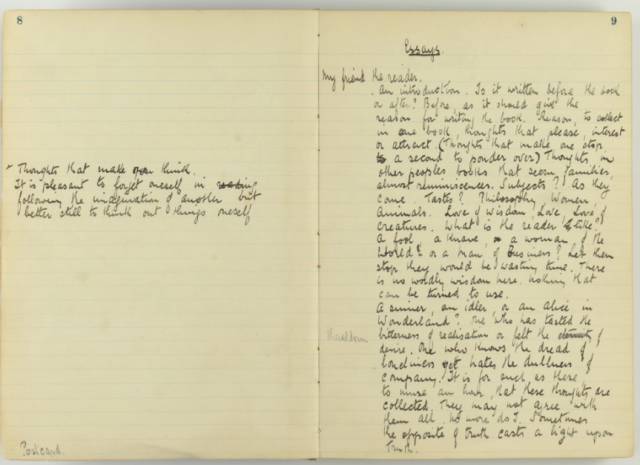 8
Thoughts that make one think.
It is pleasant to forget oneself in reading
following the imagination of another but
better still to think out things oneself
Postcard.
9
Essays
My friend the reader.
An introduction. Is it written before the book
or after? Before, as it should give the
reason for writing the book. Reason, to collect
in one book, thoughts that please, interest
or attract (Thoughts that make one stop
a second to ponder over) Thoughts in
other peoples books that seem families,
almost reminiscences. Subjects? As they
come Tastes? Philosophy, Women,
Animals. Love of wisdom, Love, Love of
creatures. What is the reader like?
A fool, a knave, a woman of the
World? or a man of Business? Let them
stop they would be wasting time. There
is no worldly wisdom here. nothing that
can be turned to use.
A sinner, an idler, or an Alice in
Wonderland? One who has tasted the
bitterness of realisation or felt the of
thraldom
desire. One who knows the dread of
loneliness yet hates the dullness of
company. It is for such, as there
to muse an hour, that these thoughts are
collected. They may not agree with
them all. No more do I. Sometimes
the opposite of truth casts a light upon
truth.